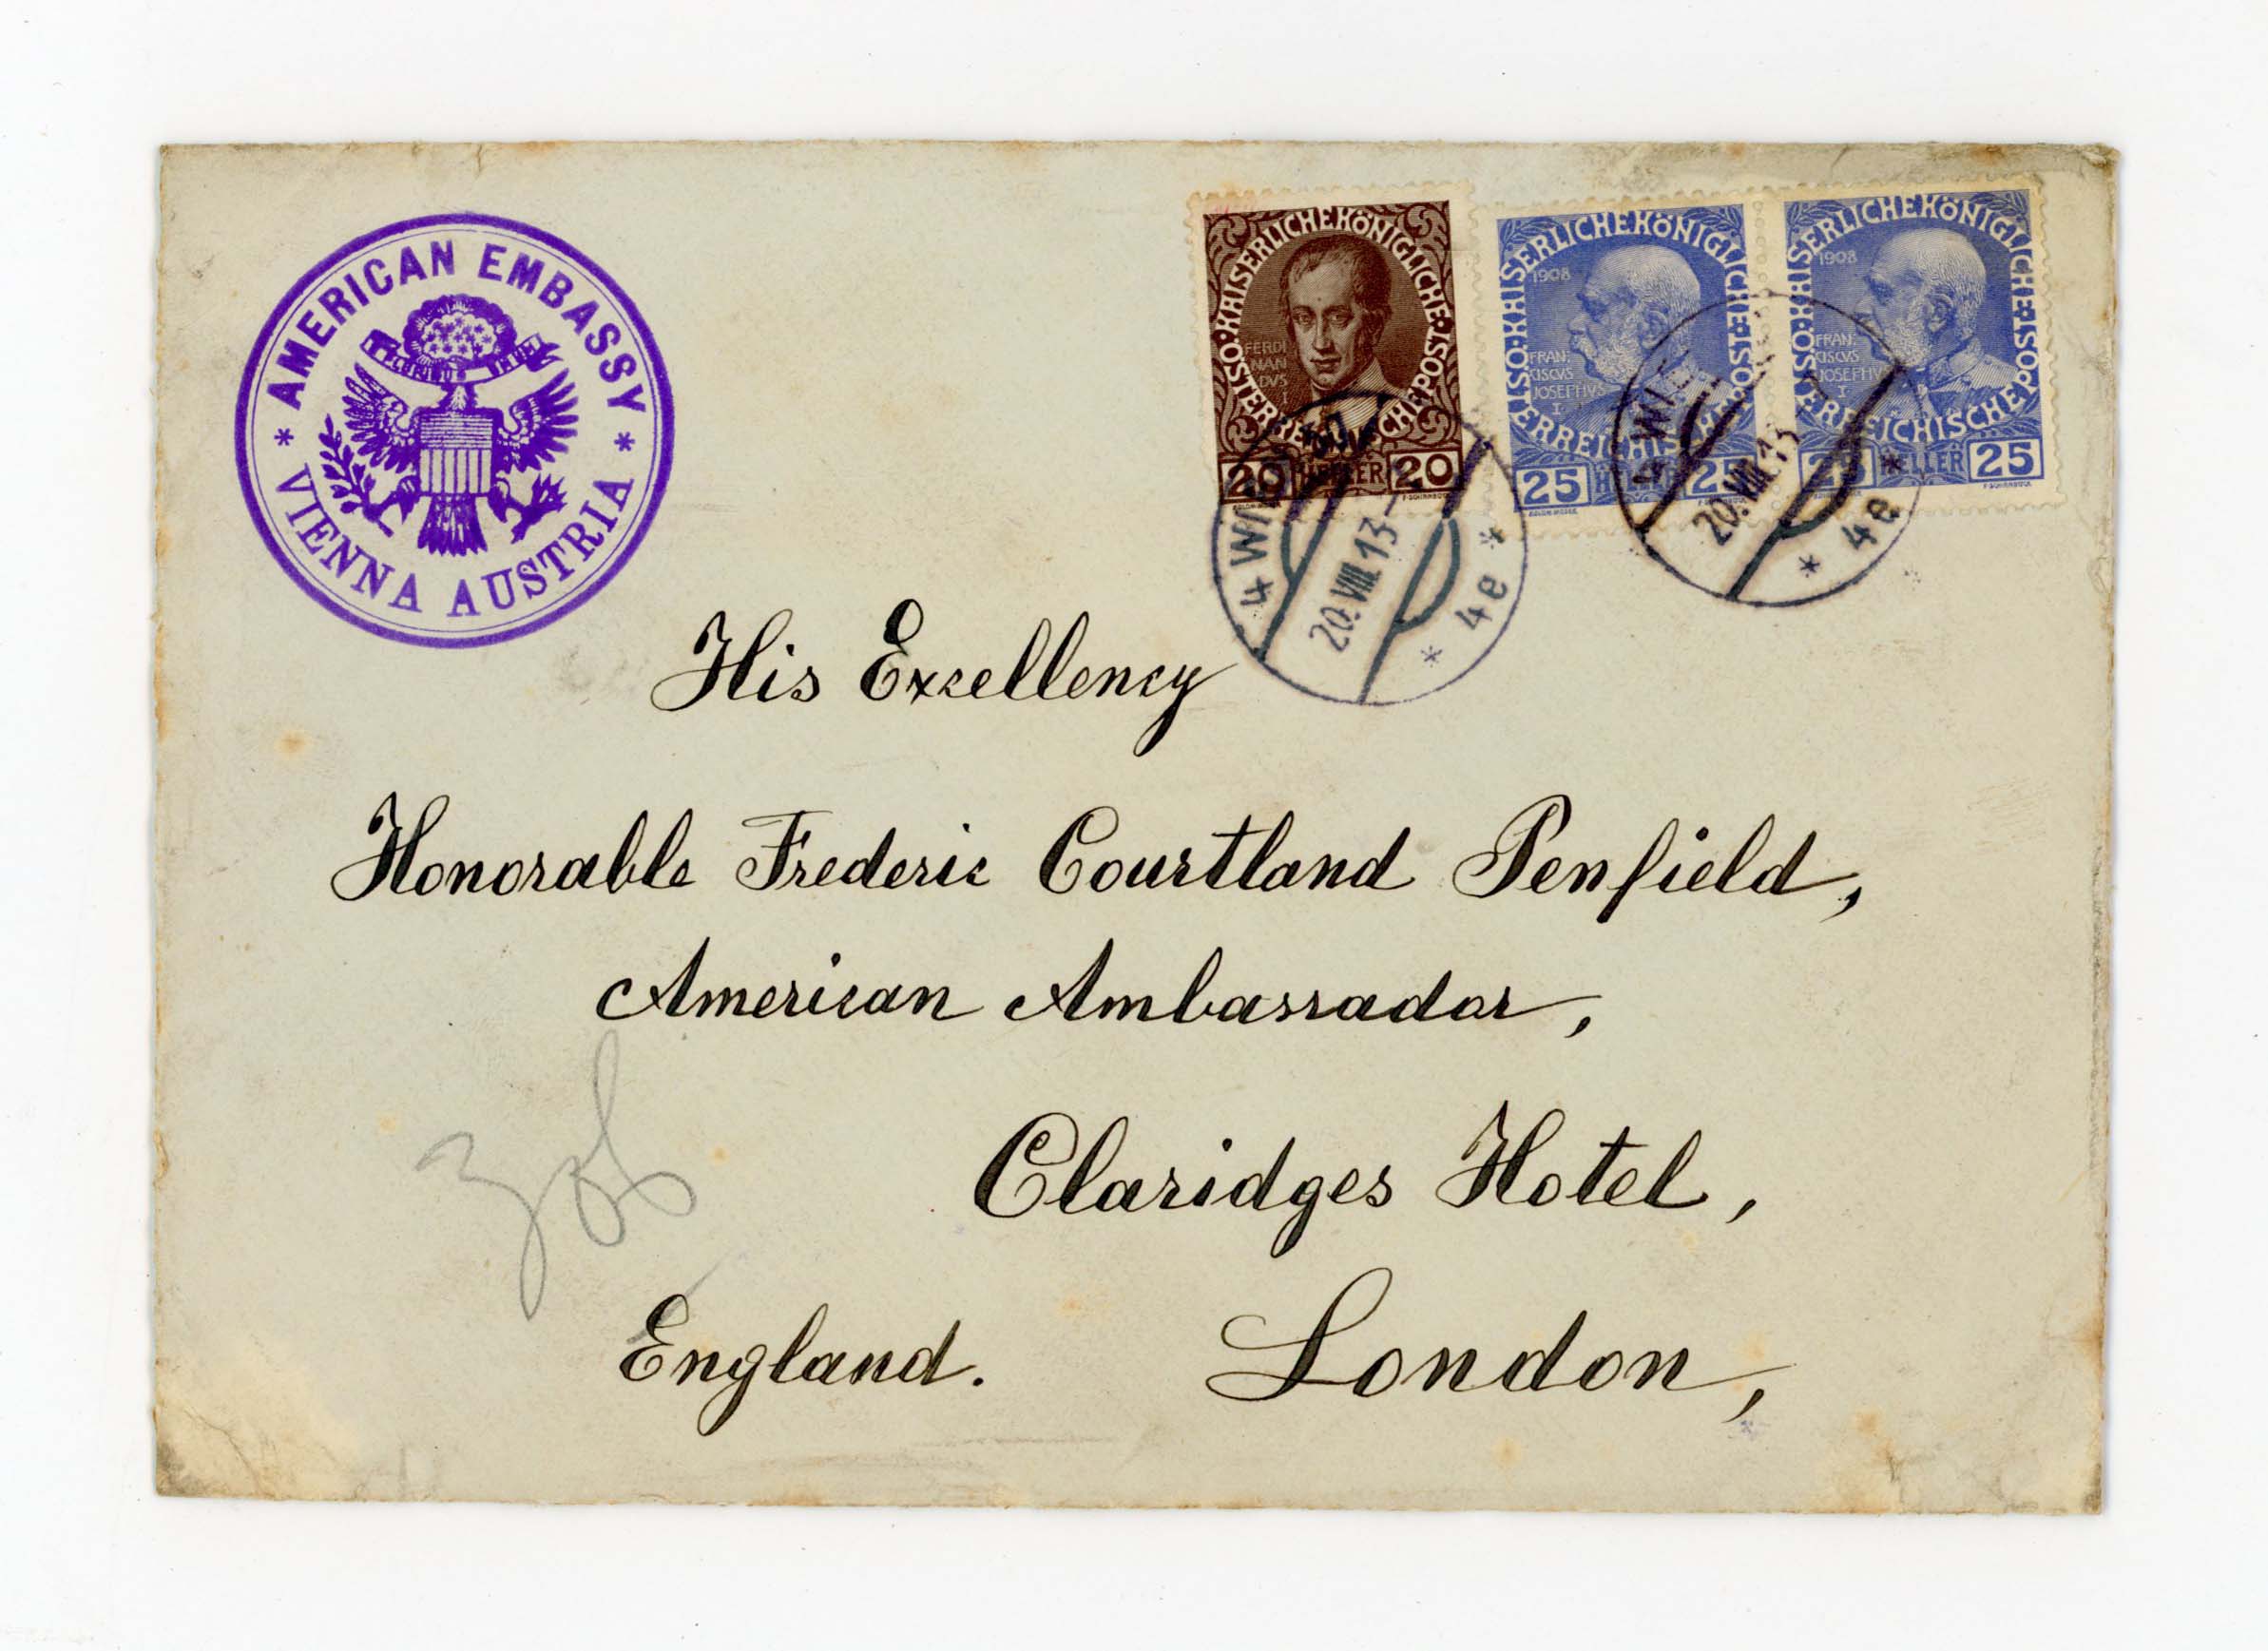 * AMERICAN EMBASSY *
VIENNA AUSTRIA
KAISERLICHE KÖNIGLICHE ÖSTERREICHISCHE POST
FERDI
NAN
DVS
I
20 HELLER 20
KAISERLICHE KÖNIGLICHE ÖSTERREICHISCHE POST
1908
FRAN:
CISCVS
JOSEPHVS
I
25 HELLER 25
KAISERLICHE KÖNIGLICHE ÖSTERREICHISCHE POST
1908
FRAN:
CISCVS
JOSEPHVS
I
25 HELLER 25
20.VIII.13
* 4e *
20.VIII.13
* 4e *
His Excellency
Honorable Frederic Courtland Penfield,
American Ambassador,
Claridges Hotel,
England. London,